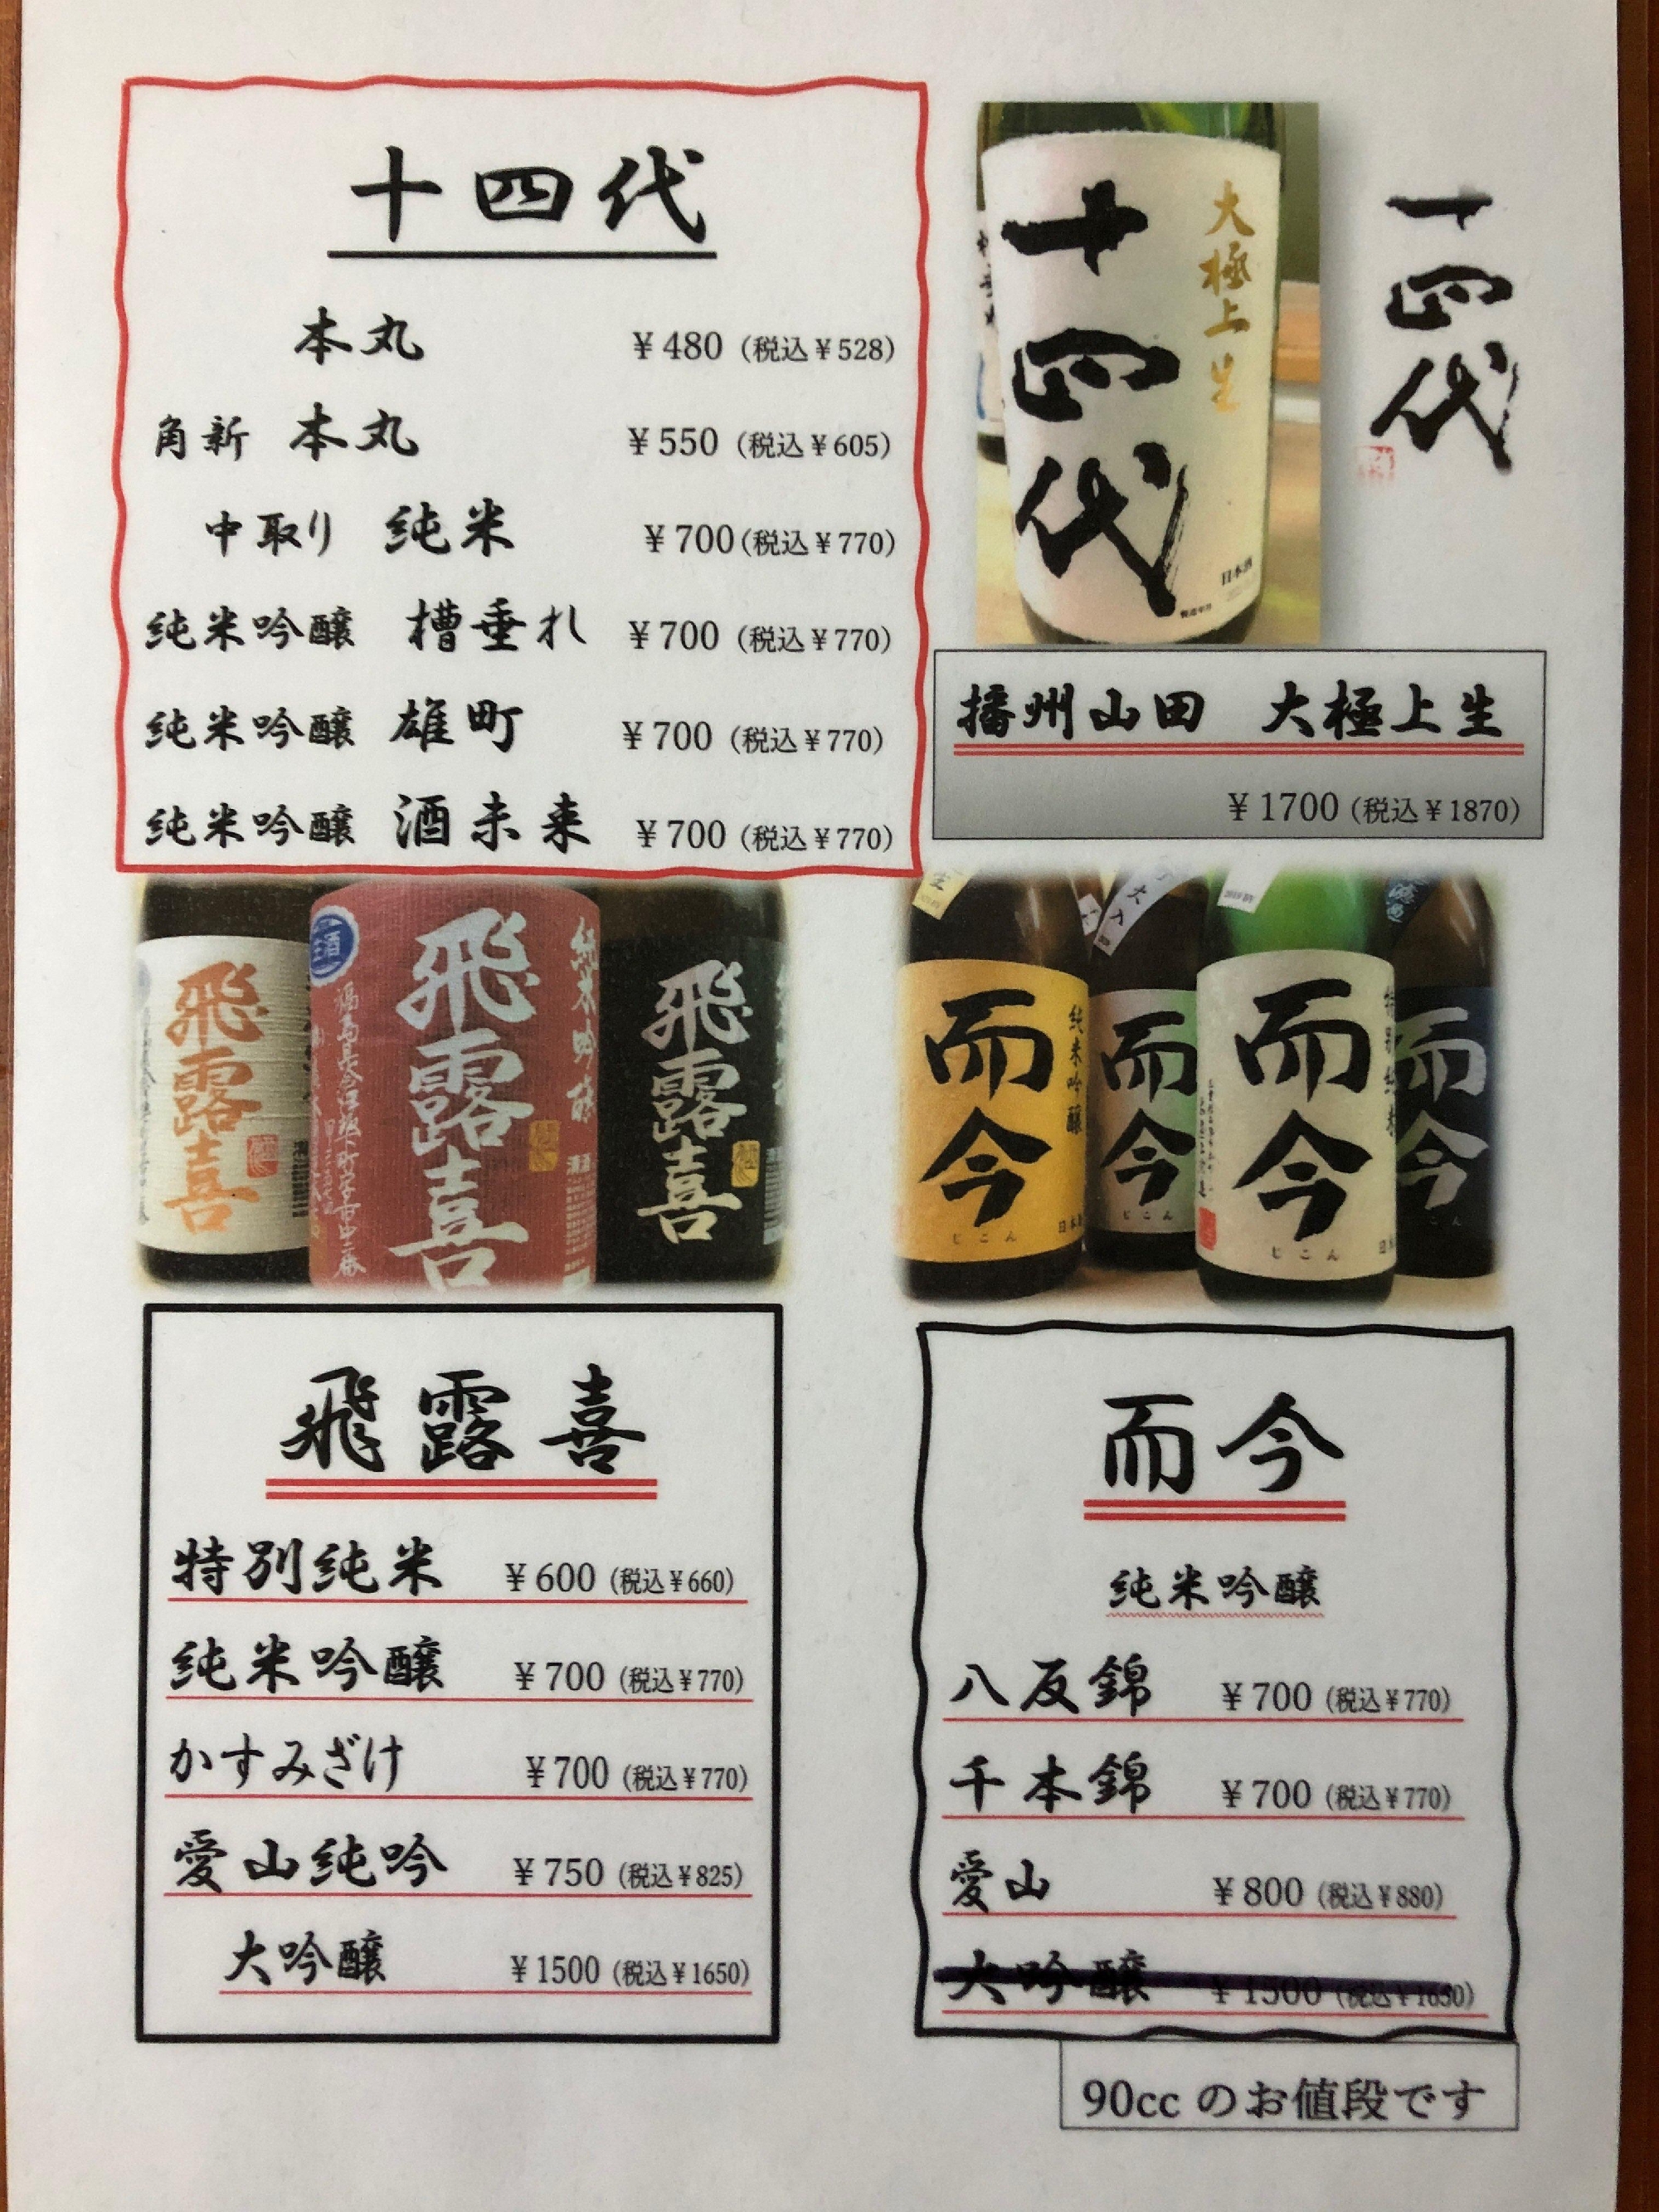 十四代
本丸 ¥480（税込¥528）
角新 本丸 ¥550（税込¥605）
中取り 純米 ¥700（税込¥770）
純米吟醸 槽垂れ ¥700（税込¥770）
純米吟醸 雄町 ¥700（税込¥770）
純米吟醸 酒未来 ¥700（税込¥770）
十四代
大極上生
日本酒
十四代
播州山田 大極上生
¥1700（税込¥1870）
飛露喜
飛露喜
純米吟醸
飛露喜
而今
純米吟醸
じこん
而今
じこん
而今
特別純米
じこん
而今
飛露喜
特別純米 ¥600（税込¥660）
純米吟醸 ¥700（税込¥770）
かすみざけ ¥700（税込¥770）
愛山純吟 ¥750（税込¥825）
大吟醸 ¥1500（税込¥1650）
而今
純米吟醸
八反錦 ¥700（税込¥770）
千本錦 ¥700（税込¥770）
愛山 ¥800（税込¥880）
大吟醸 ¥1500（税込¥1650）
90cc のお値段です